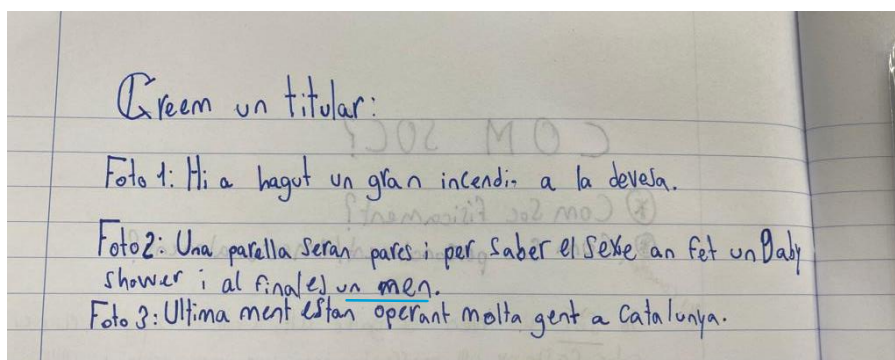 Creem un titular:
Foto 1: Hi a hagut un gran incendi a la devesa.
Foto 2: Una parella seran pares i per saber el sexe an fet un Baby
shower i al final es un men.
Foto 3: Ultima ment estan operant molta gent a Catalunya.
COM SOC?
Com Soc físicament?